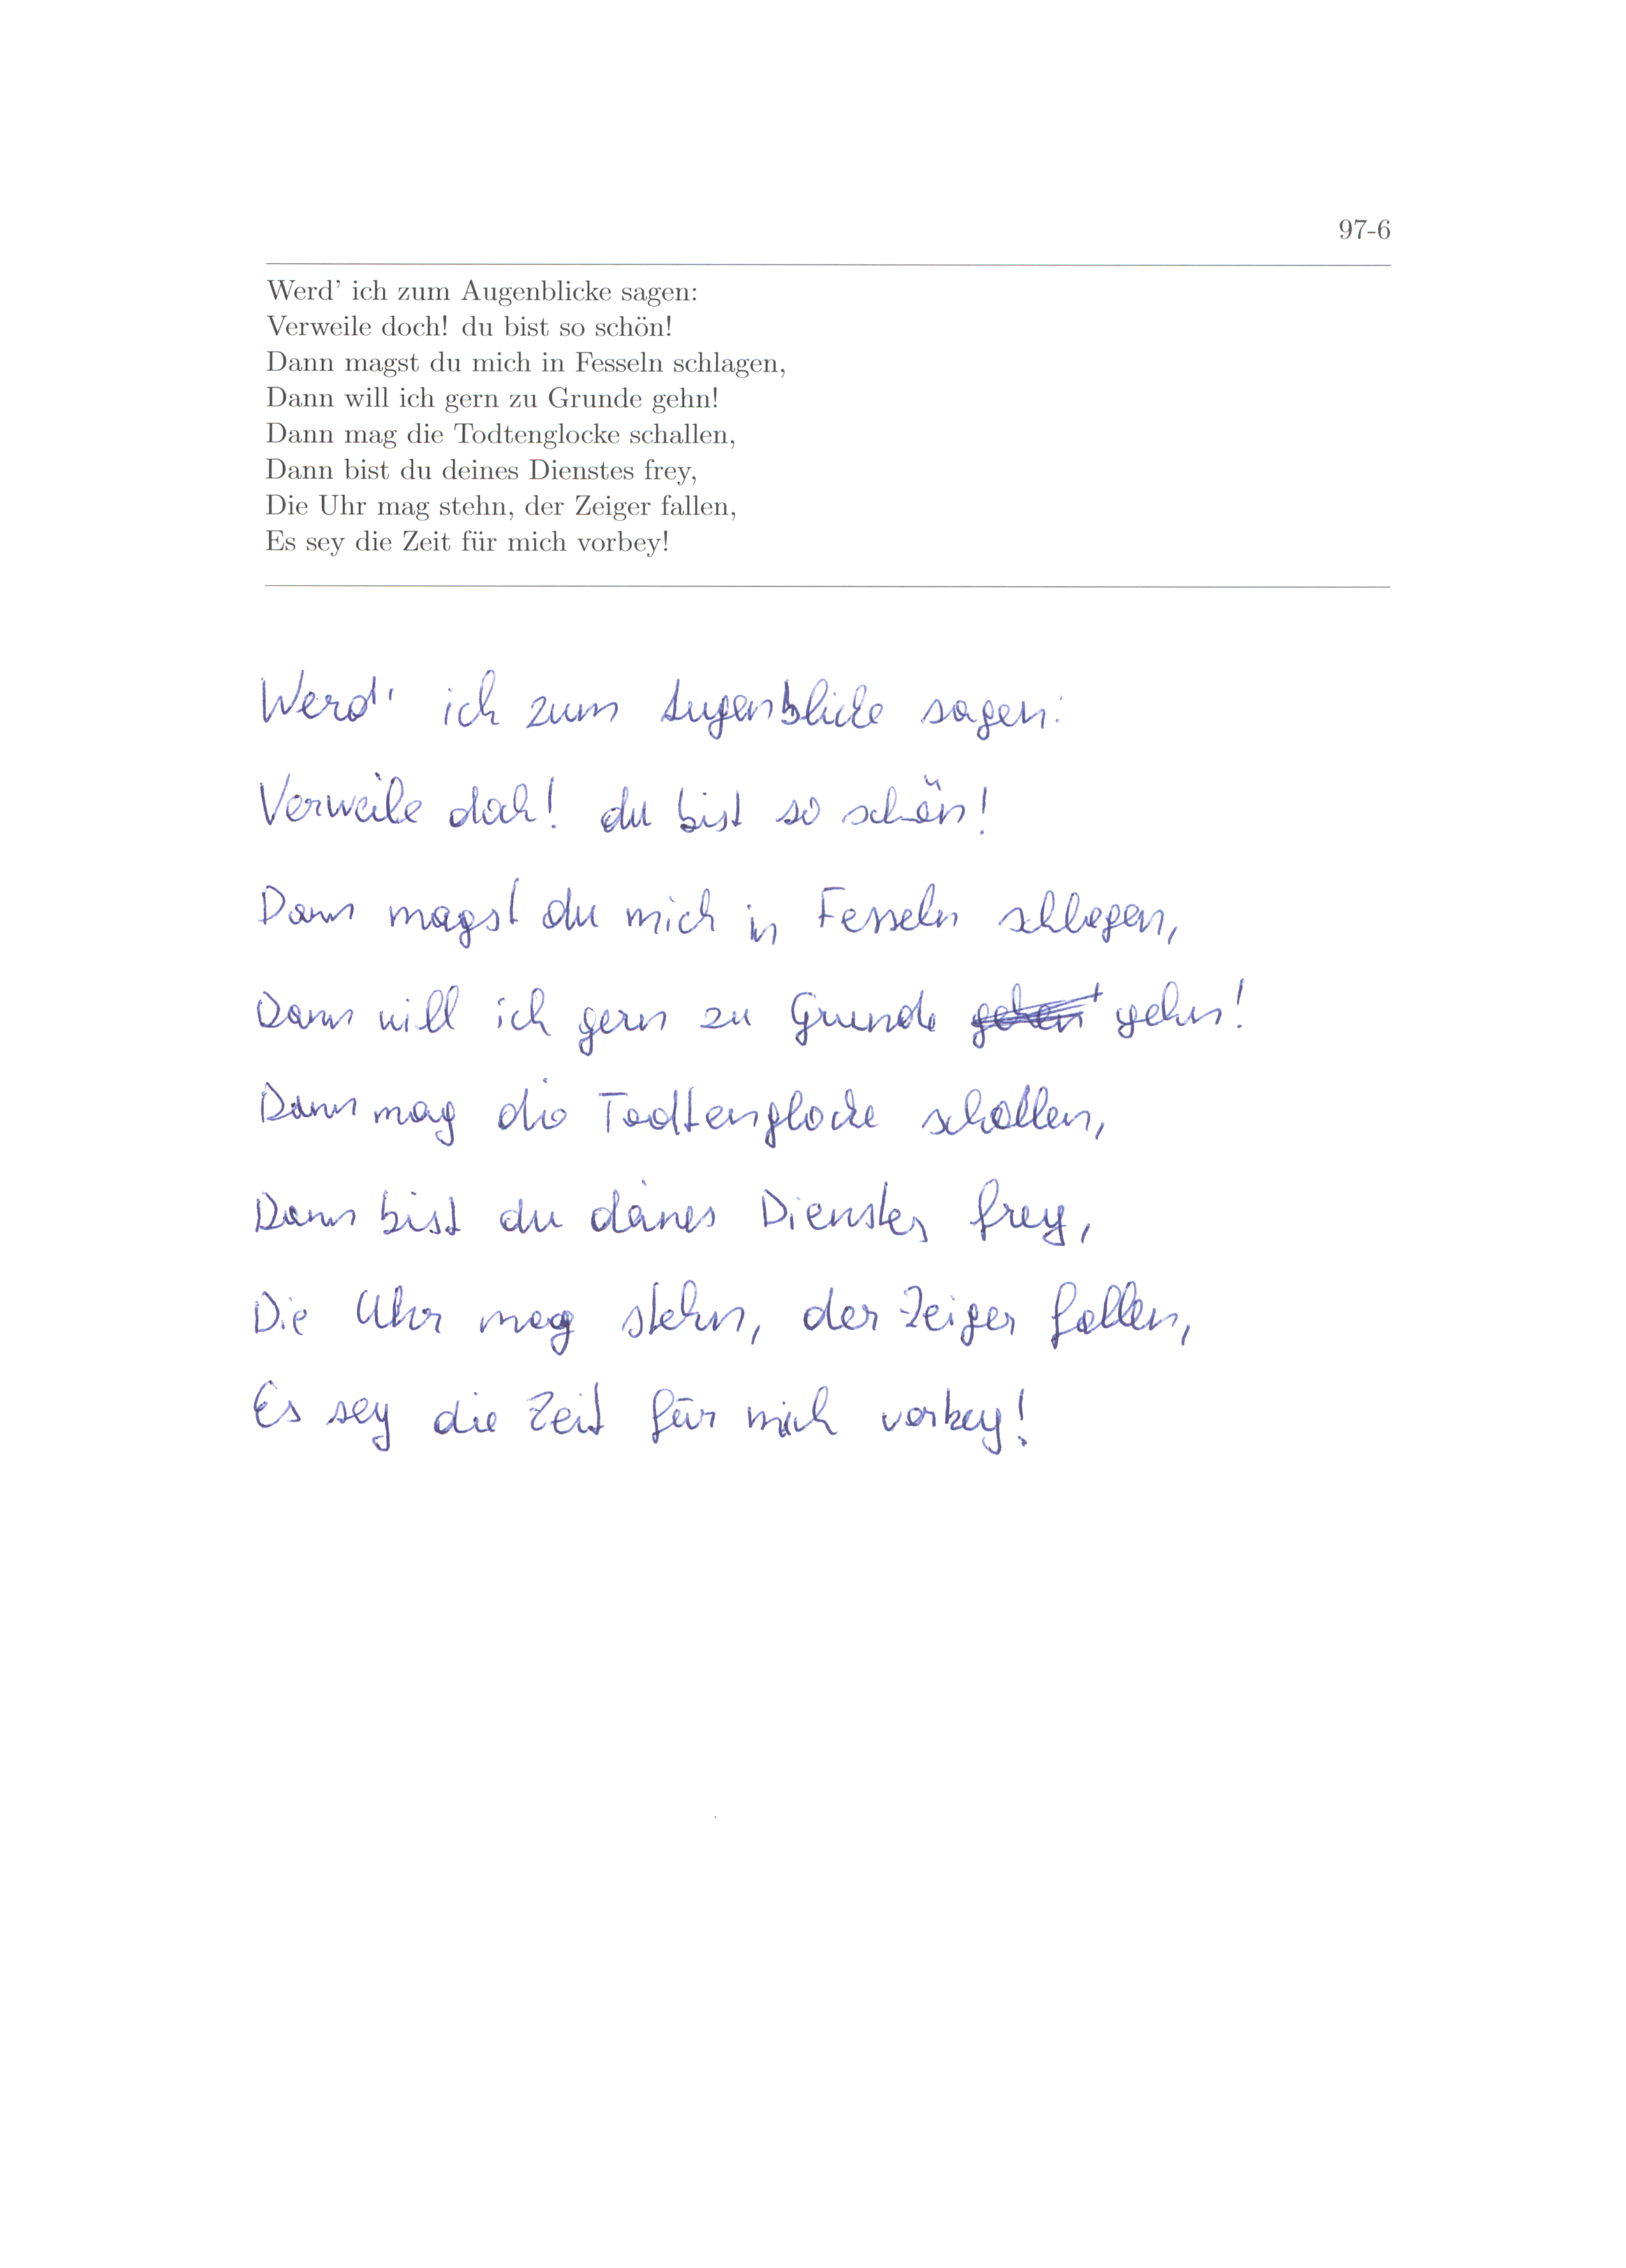 97-6
Werd' ich zum Augenblicke sagen:
Verweile doch! du bist so schön!
Dann magst du mich in Fesseln schlagen,
Dann will ich gern zu Grunde gehn!
Dann mag die Todtenglocke schallen,
Dann bist du deines Dienstes frey,
Die Uhr mag stehn, der Zeiger fallen,
Es sey die Zeit für mich vorbey!
Werd' ich zum Augenblicke sagen:
Verweile doch! du bist so schön!
Dann magst du mich in Fesseln schlagen,
Dann will ich gern zu Grunde gehn!
Dann mag die Todtenglocke schallen,
Dann bist du deines Dienstes frey,
Die Uhr mag stehn, der Zeiger fallen,
Es sey die Zeit für mich vorbey!